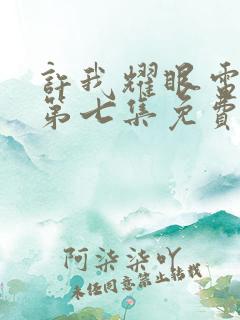 許我耀眼電
第七集免費
阿柒柒吖
未经同意禁止转载